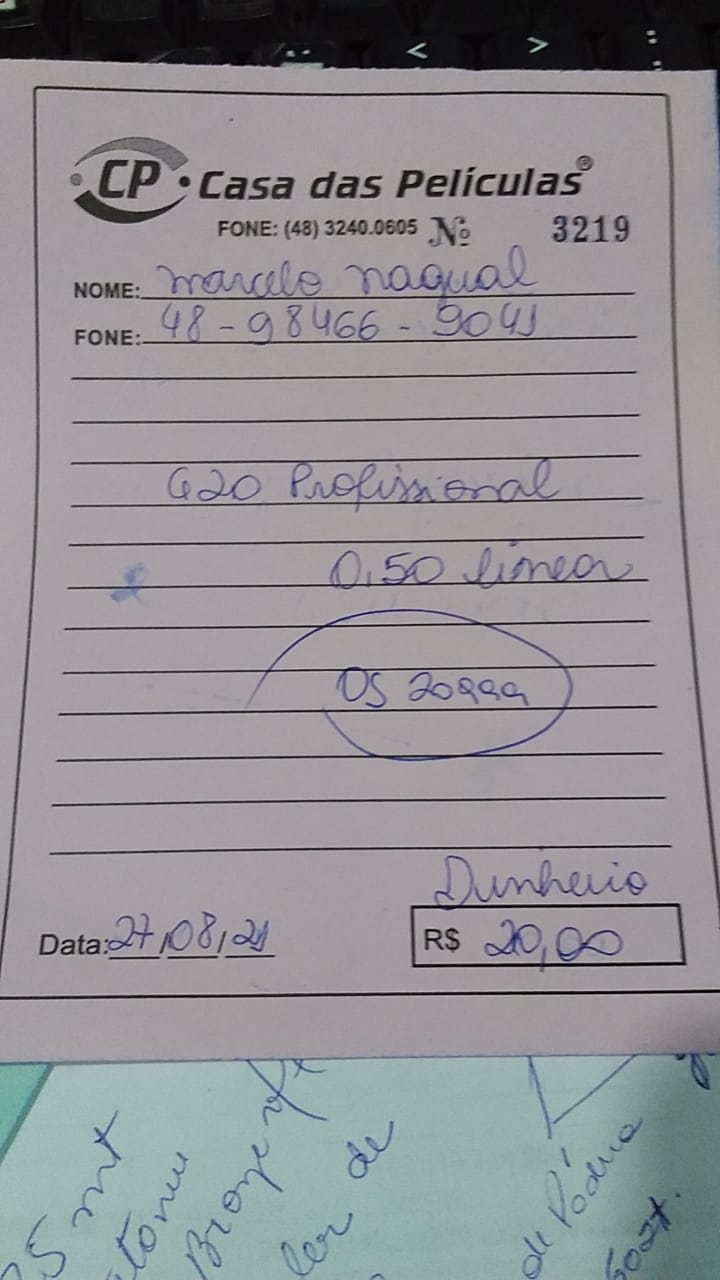 CP
Casa das Películas®
FONE: (48) 3240.0605 Nº 3219
NOME: Marcelo Naqual
FONE: 48-98466-9041
G20 Profissional
0,50 linear
OS 20999
Dinheiro
Data: 27/08/21
R$ 20,00
5 mt
Bronze
de
de Pádua